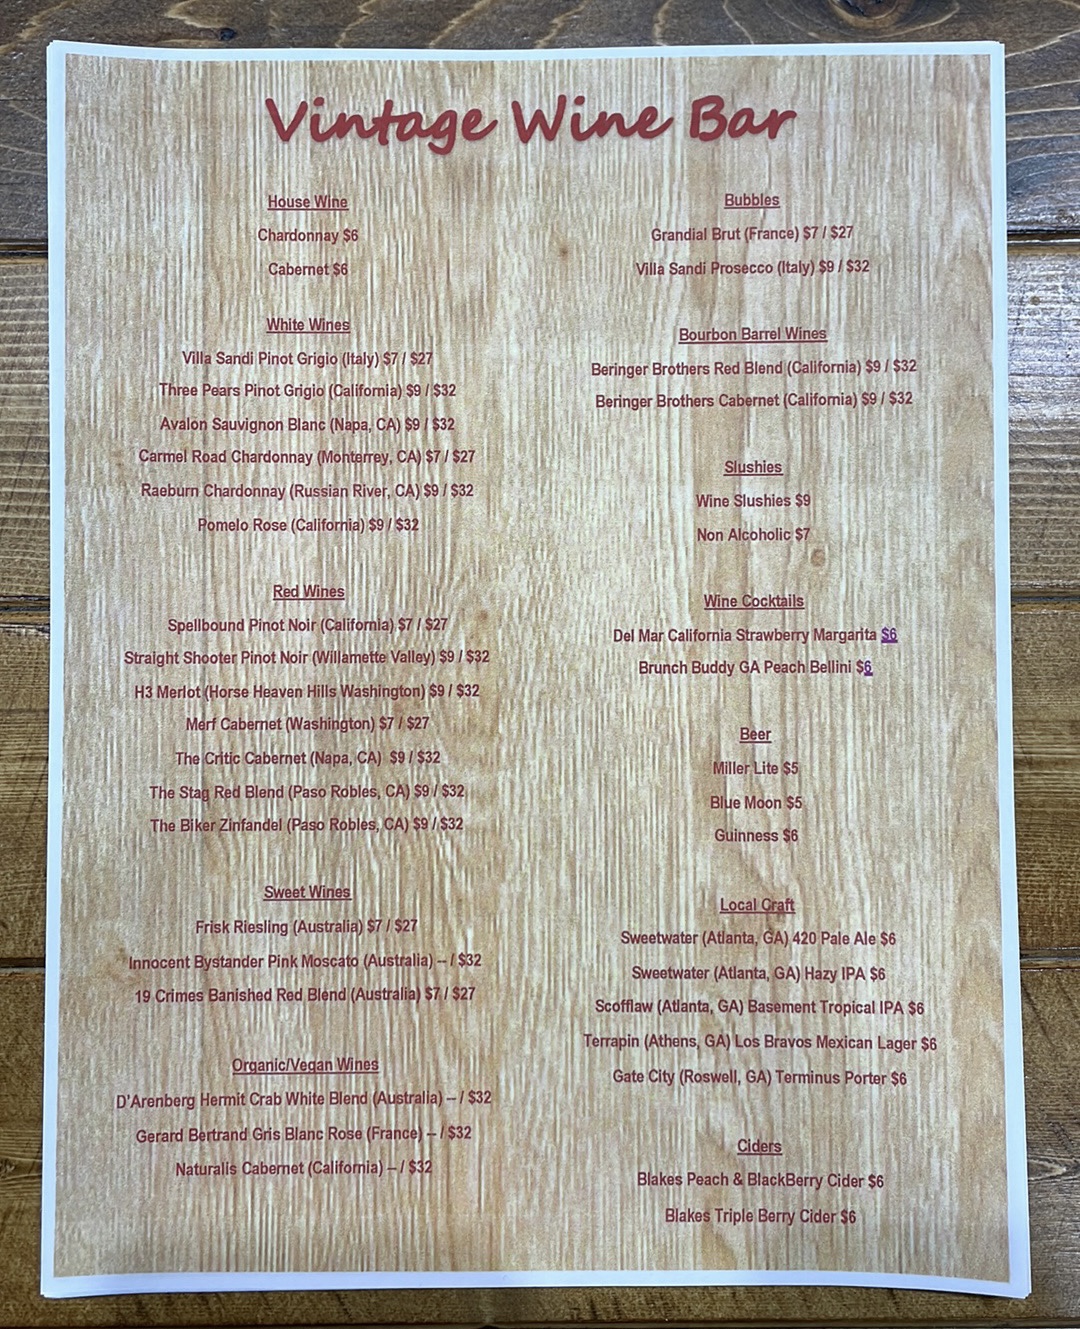 Vintage Wine Bar
House Wine
Chardonnay $6
Cabernet $6
White Wines
Villa Sandi Pinot Grigio (Italy) $7 / $27
Three Pears Pinot Grigio (California) $9 / $32
Avalon Sauvignon Blanc (Napa, CA) $9 / $32
Carmel Road Chardonnay (Monterrey, CA) $7 / $27
Raeburn Chardonnay (Russian River, CA) $9 / $32
Pomelo Rose (California) $9 / $32
Red Wines
Spellbound Pinot Noir (California) $7 / $27
Straight Shooter Pinot Noir (Willamette Valley) $9 / $32
H3 Merlot (Horse Heaven Hills Washington) $9 / $32
Merf Cabernet (Washington) $7 / $27
The Critic Cabernet (Napa, CA) $9 / $32
The Stag Red Blend (Paso Robles, CA) $9 / $32
The Biker Zinfandel (Paso Robles, CA) $9 / $32
Sweet Wines
Frisk Riesling (Australia) $7 / $27
Innocent Bystander Pink Moscato (Australia) – / $32
19 Crimes Banished Red Blend (Australia) $7 / $27
Organic/Vegan Wines
D'Arenberg Hermit Crab White Blend (Australia) – / $32
Gerard Bertrand Gris Blanc Rose (France) – / $32
Naturalis Cabernet (California) – / $32
Bubbles
Grandial Brut (France) $7 / $27
Villa Sandi Prosecco (Italy) $9 / $32
Bourbon Barrel Wines
Beringer Brothers Red Blend (California) $9 / $32
Beringer Brothers Cabernet (California) $9 / $32
Slushies
Wine Slushies $9
Non Alcoholic $7
Wine Cocktails
Del Mar California Strawberry Margarita $6
Brunch Buddy GA Peach Bellini $6
Beer
Miller Lite $5
Blue Moon $5
Guinness $6
Local Craft
Sweetwater (Atlanta, GA) 420 Pale Ale $6
Sweetwater (Atlanta, GA) Hazy IPA $6
Scofflaw (Atlanta, GA) Basement Tropical IPA $6
Terrapin (Athens, GA) Los Bravos Mexican Lager $6
Gate City (Roswell, GA) Terminus Porter $6
Ciders
Blakes Peach & BlackBerry Cider $6
Blakes Triple Berry Cider $6